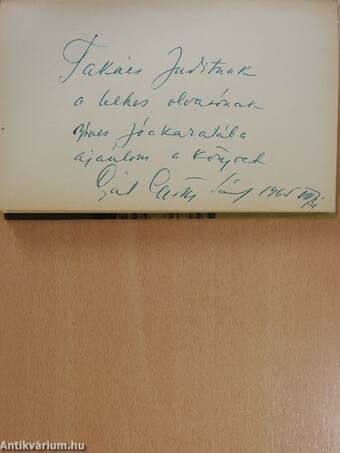 Takács Juditnak
a lelkes olvasónak
szives jóakaratába
ajánlom a könyvet
1965
Antikvárium.hu